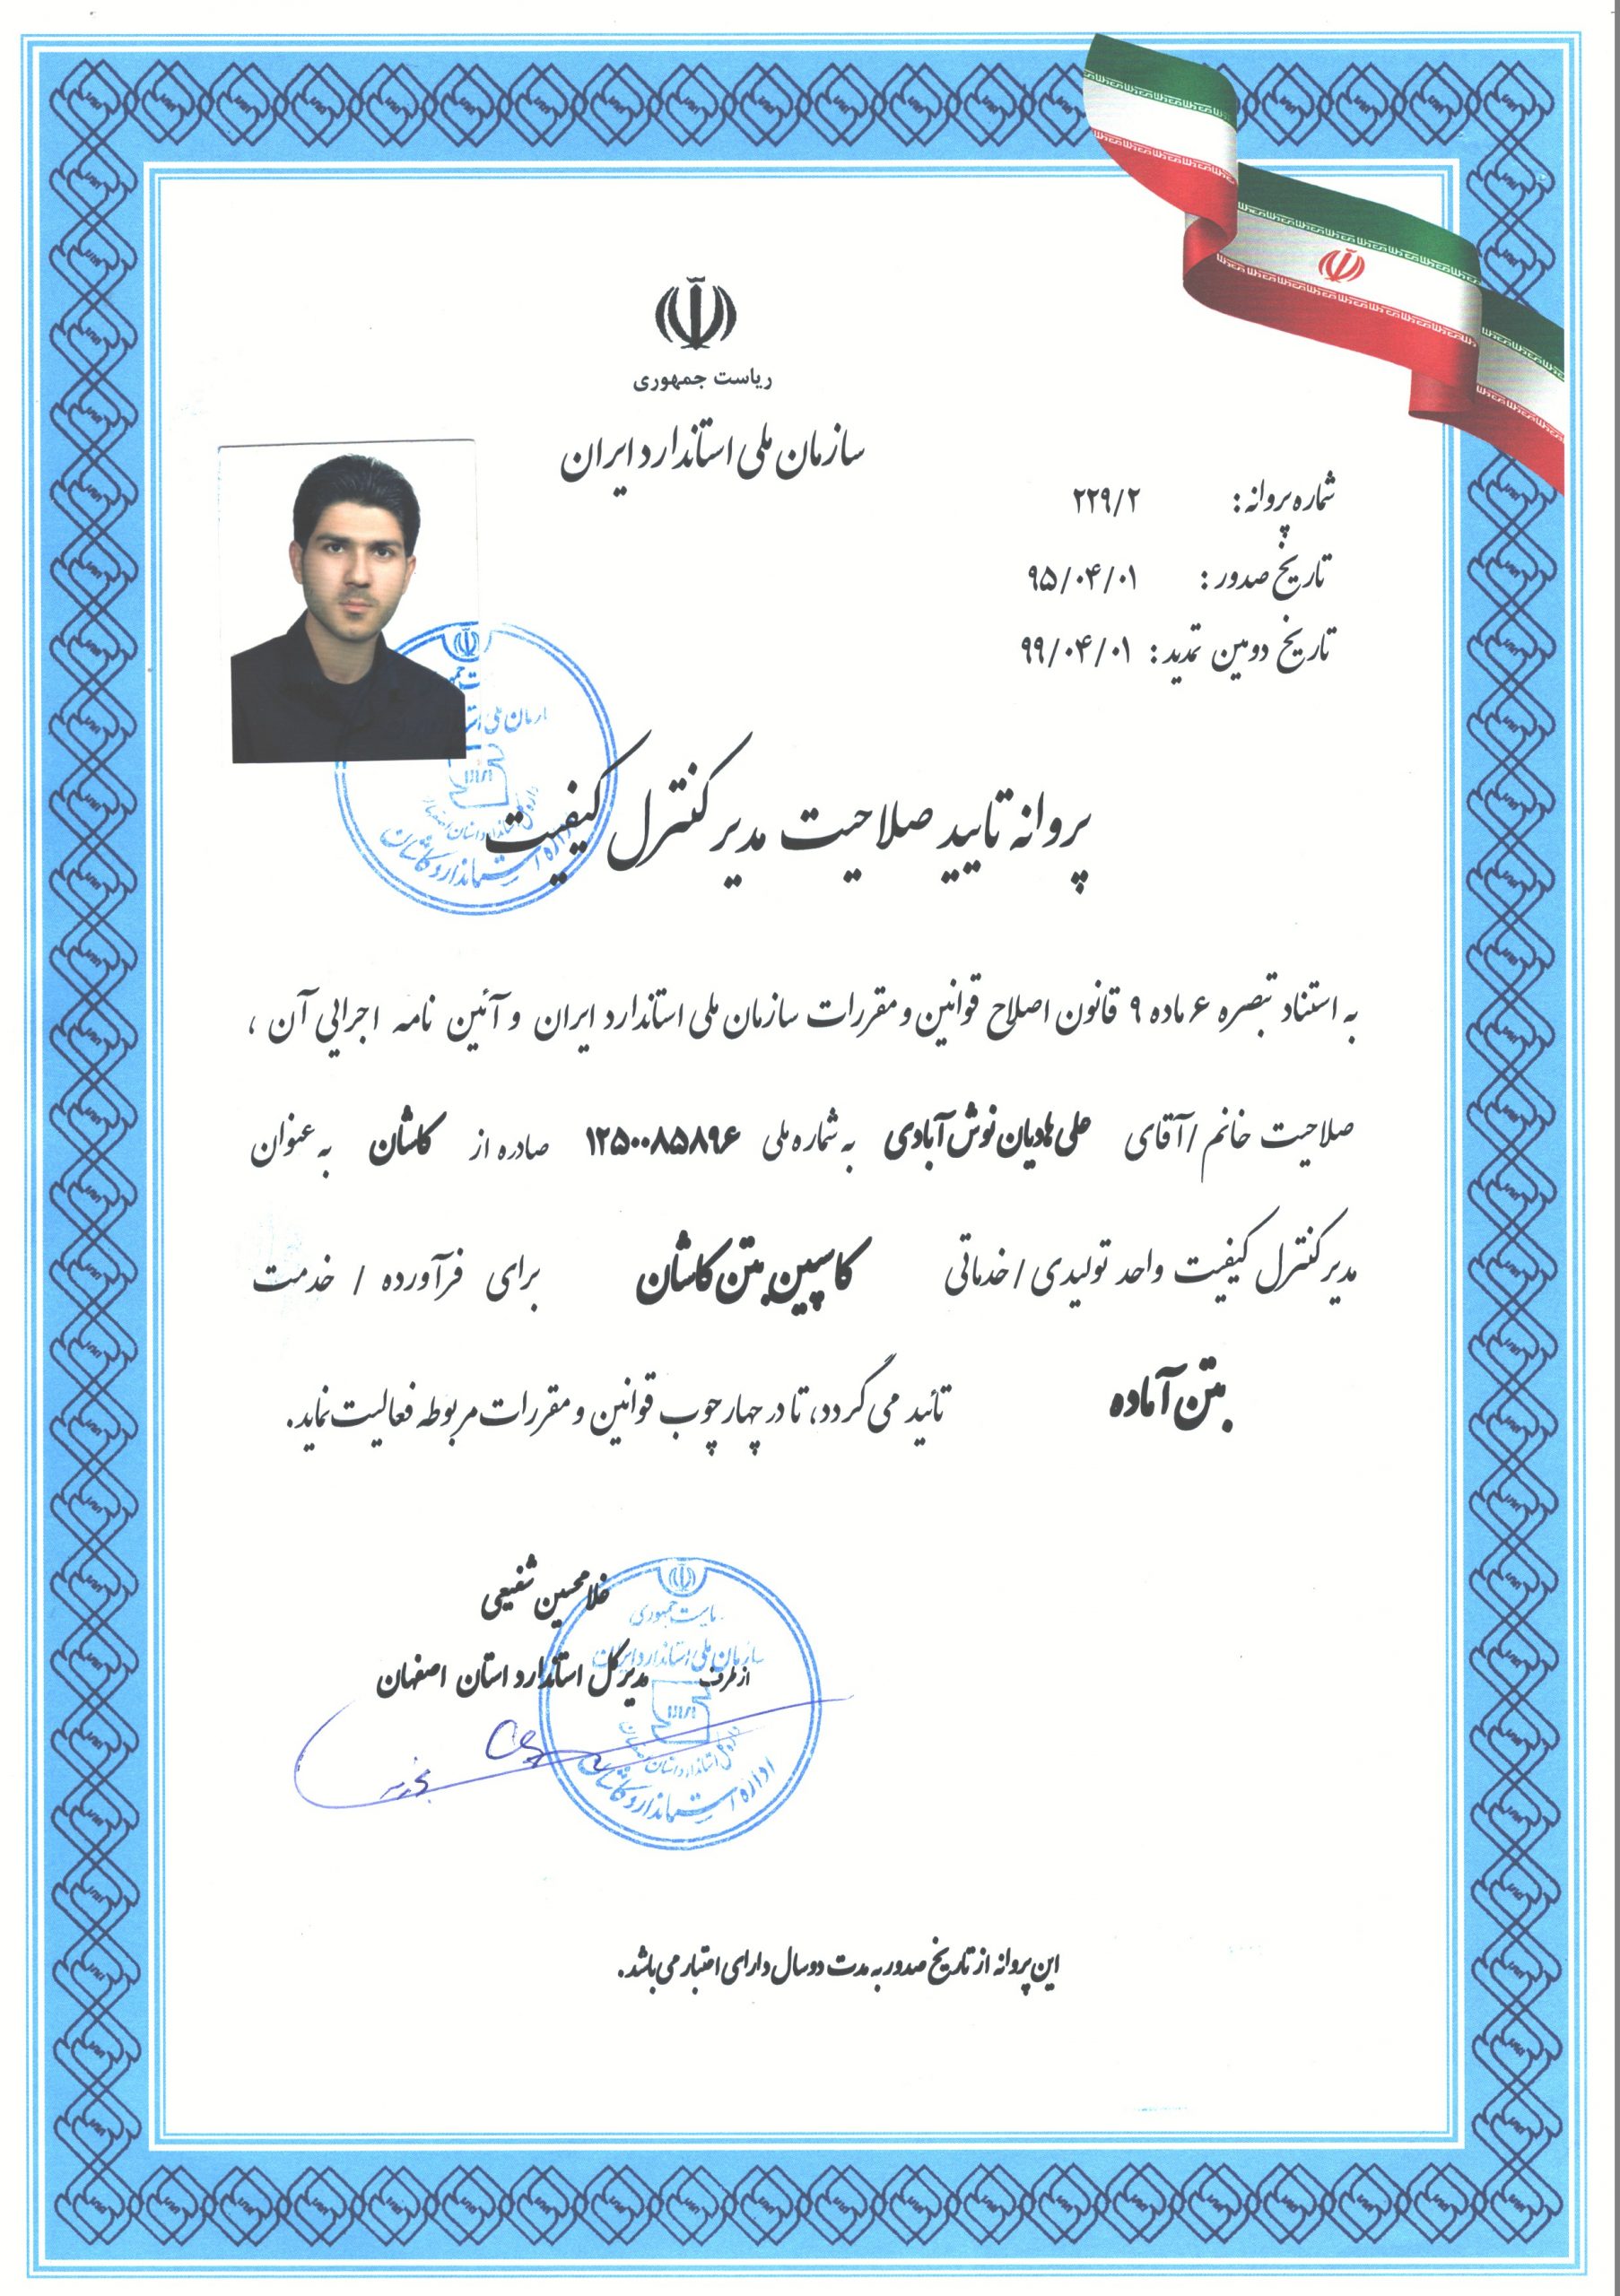 ریاست جمهوری
سازمان ملی استاندارد ایران
شماره پروانه: ۲۲۹/۲
تاریخ صدور: ۹۵/۰۴/۰۱
تاریخ دومین تمدید: ۹۹/۰۴/۰۱
پروانه تایید صلاحیت مدیر کنترل کیفیت
به استناد تبصره ۶ ماده ۹ قانون اصلاح قوانین و مقررات سازمان ملی استاندارد ایران و آئین نامه اجرایی آن ،
صلاحیت خانم /آقای علی هادیان نوش آبادی به شماره ملی ۱۲۵۰۰۸۵۸۹۶ صادره از کاشان به عنوان
مدیر کنترل کیفیت واحد تولیدی / خدماتی کاسپین بتن کاشان برای فرآورده / خدمت
بتن آماده تائید می گردد، تا در چهار چوب قوانین و مقررات مربوطه فعالیت نماید.
غلامحسین شفیعی
از طرف مدیر کل استاندارد استان اصفهان
ریاست جمهوری
سازمان ملی استاندارد ایران
اداره کل استاندارد استان اصفهان
اداره استاندارد کاشان
این پروانه از تاریخ صدور به مدت دو سال دارای اعتبار می باشد.